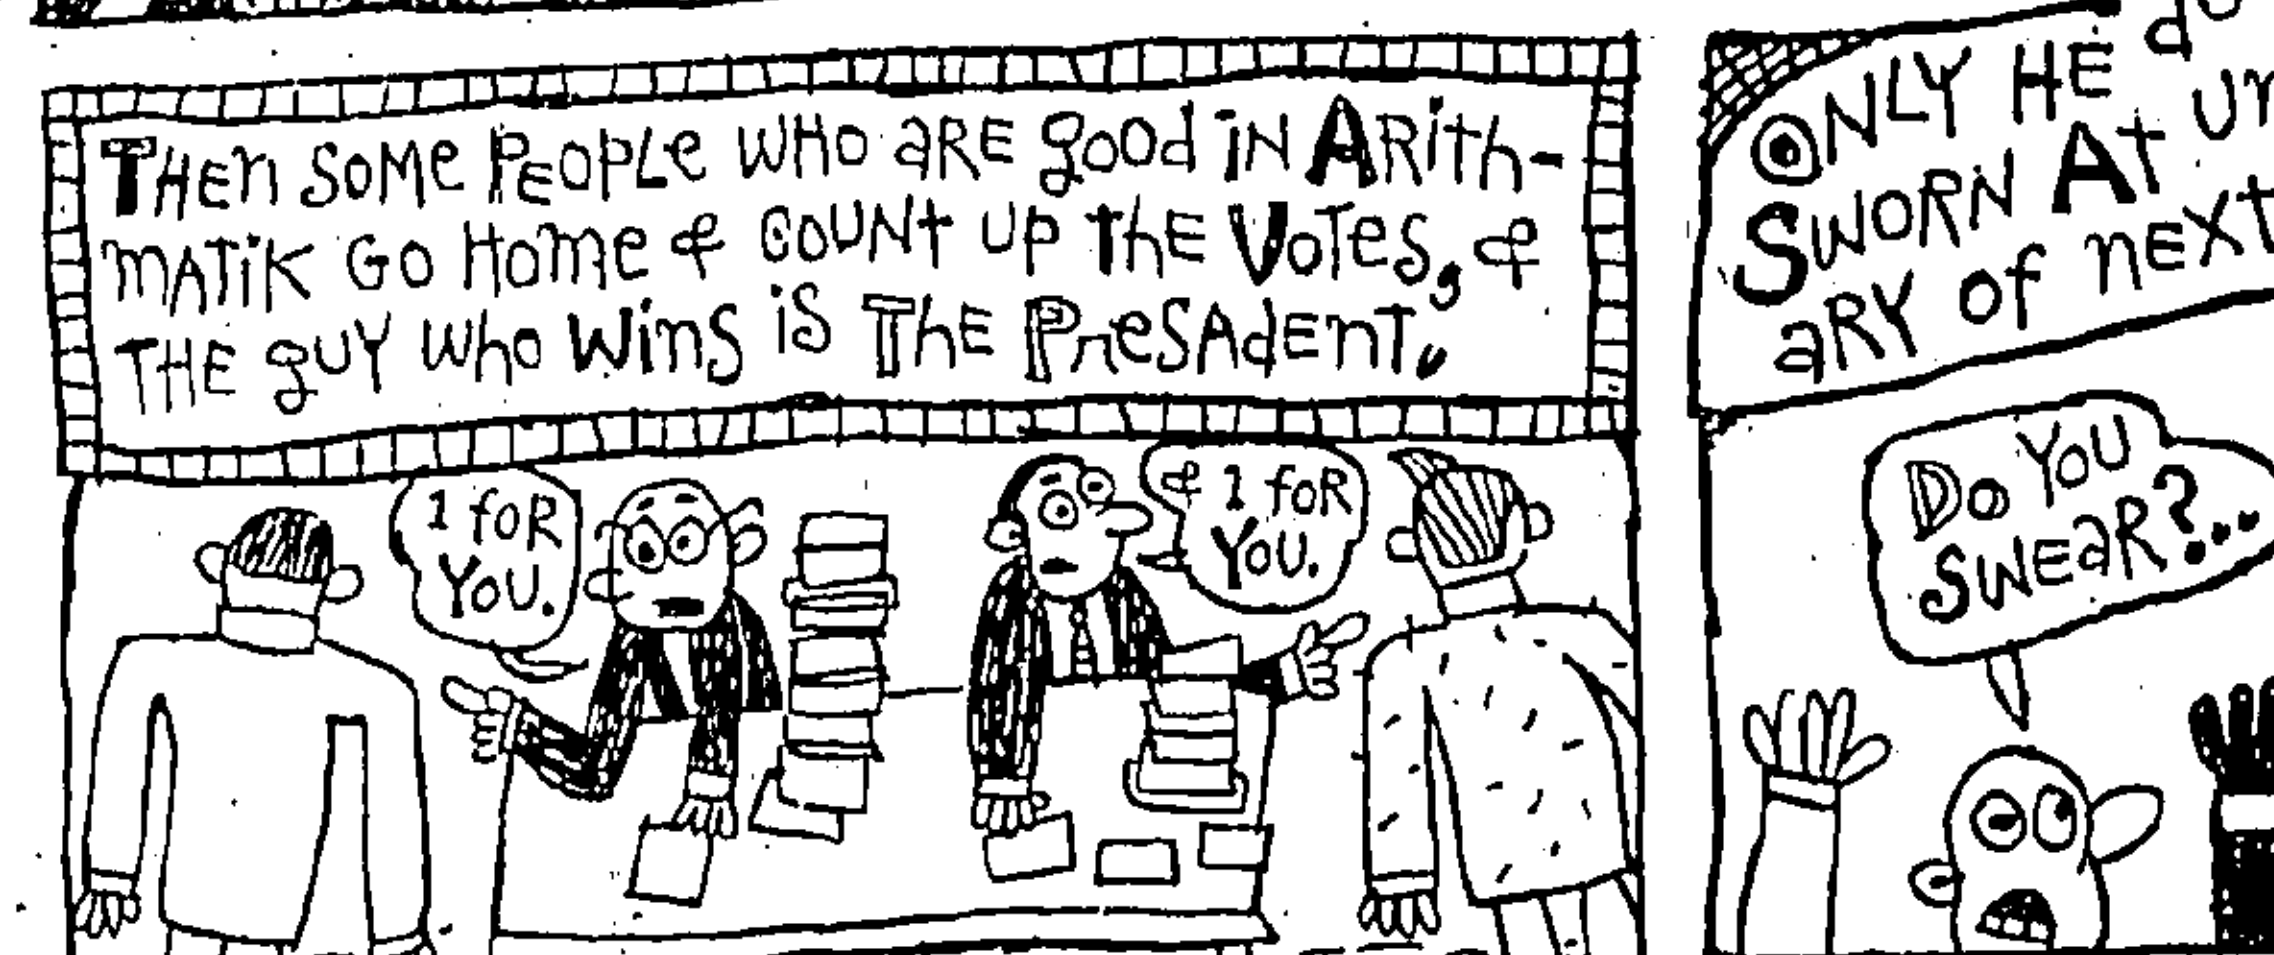 THEn SOME PEOPLe WHO aRE good iN ARith-
MATiK GO HOme & COUNt UP thE VoTes, &
THE gUY who Wins iS ThE PresAdEnT.
1 foR
YoU.
& 1 foR
YoU.
ONLY HE
SWORN At
aRY of nEXt
Do YoU
SWEaR?..